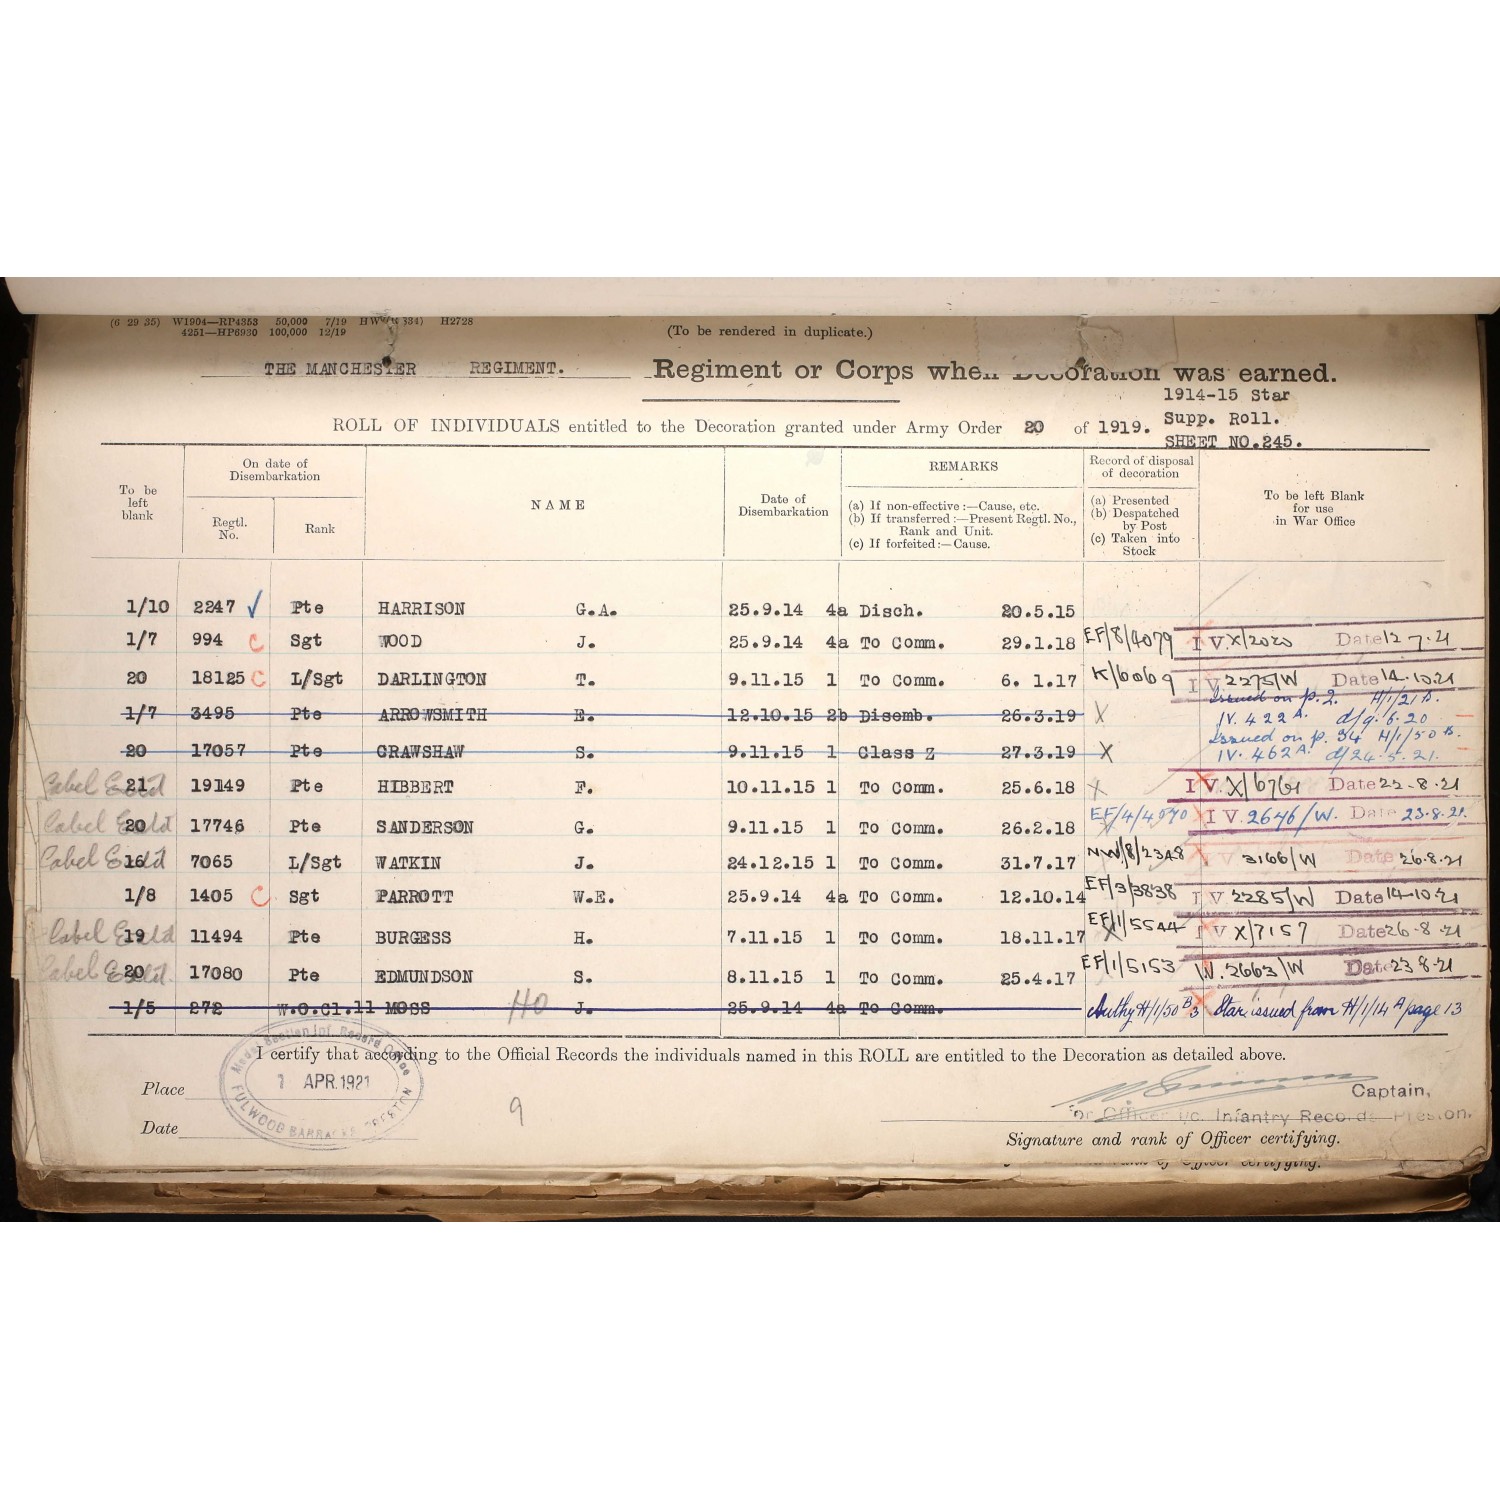 (6 29 35) W1904—RP4353 50,000 7/19 HW 334) H2728
4251—HP6930 100,000 12/19
(To be rendered in duplicate.)
THE MANCHESTER REGIMENT. Regiment or Corps when Decoration was earned.
1914-15 Star
Supp. Roll.
SHEET NO.245.
ROLL OF INDIVIDUALS entitled to the Decoration granted under Army Order 20 of 1919.
To be left blank
On date of Disembarkation
Regtl. No.
Rank
NAME
Date of Disembarkation
REMARKS
(a) If non-effective:—Cause, etc.
(b) If transferred:—Present Regtl. No., Rank and Unit.
(c) If forfeited:—Cause.
Record of disposal of decoration
(a) Presented
(b) Despatched by Post
(c) Taken into Stock
To be left Blank for use in War Office
1/10 2247 Pte HARRISON G.A. 25.9.14 4a Disch. 20.5.15
1/7 994 C Sgt WOOD J. 25.9.14 4a To Comm. 29.1.18 EF/8/4079 IV.X/2020 Date 12.7.21
20 18125 C L/Sgt DARLINGTON T. 9.11.15 1 To Comm. 6. 1.17 K/6069 IV 2275/W Date 14.10.21
1/7 3495 Pte ARROWSMITH E. 12.10.15 2b Disemb. 26.3.19 X Issued on p. 2. H/1/21 B.
IV. 422 A. d/9.6.20
20 17057 Pte CRAWSHAW S. 9.11.15 1 Class Z 27.3.19 X Issued on p. 34 H/1/50 B.
IV. 462 A. d/24.5.21.
Label Endd 21 19149 Pte HIBBERT F. 10.11.15 1 To Comm. 25.6.18 X IV.X/6761 Date 22.8.21
Label Endd 20 17746 Pte SANDERSON G. 9.11.15 1 To Comm. 26.2.18 EF/4/4570 IV 2646/W. Date 23.8.21.
Label Endd 16 7065 L/Sgt WATKIN J. 24.12.15 1 To Comm. 31.7.17 NW/8/2348 IV 3166/W Date 26.8.21
1/8 1405 C Sgt PARROTT W.E. 25.9.14 4a To Comm. 12.10.14 EF/3/3838 IV 2285/W Date 14.10.21
Label Endd 19 11494 Pte BURGESS H. 7.11.15 1 To Comm. 18.11.17 EF/1/5544 IV X/7157 Date 26.8.21
Label Endd. 20 17080 Pte EDMUNDSON S. 8.11.15 1 To Comm. 25.4.17 EF/1/5153 IV.2663/W Date 23.8.21
1/5 272 W.O.Cl.11 MOSS HO J. 25.9.14 4a To Comm. Authy H/1/50 B 3 Star issued from H/1/14 A page 13
I certify that according to the Official Records the individuals named in this ROLL are entitled to the Decoration as detailed above.
Medal Section Inf. Record Office
1 APR.1921
FULWOOD BARRACKS PRESTON
Place
Date
9
Captain,
for Officer i/c. Infantry Records Preston.
Signature and rank of Officer certifying.